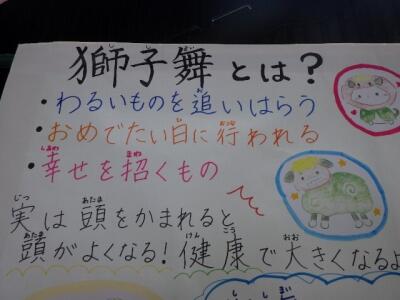 獅子舞とは?
・わるいものを追いはらう
・おめでたい日に行われる
・幸せを招くもの
実は頭をかまれると
頭がよくなる!健康で大きくなるよ